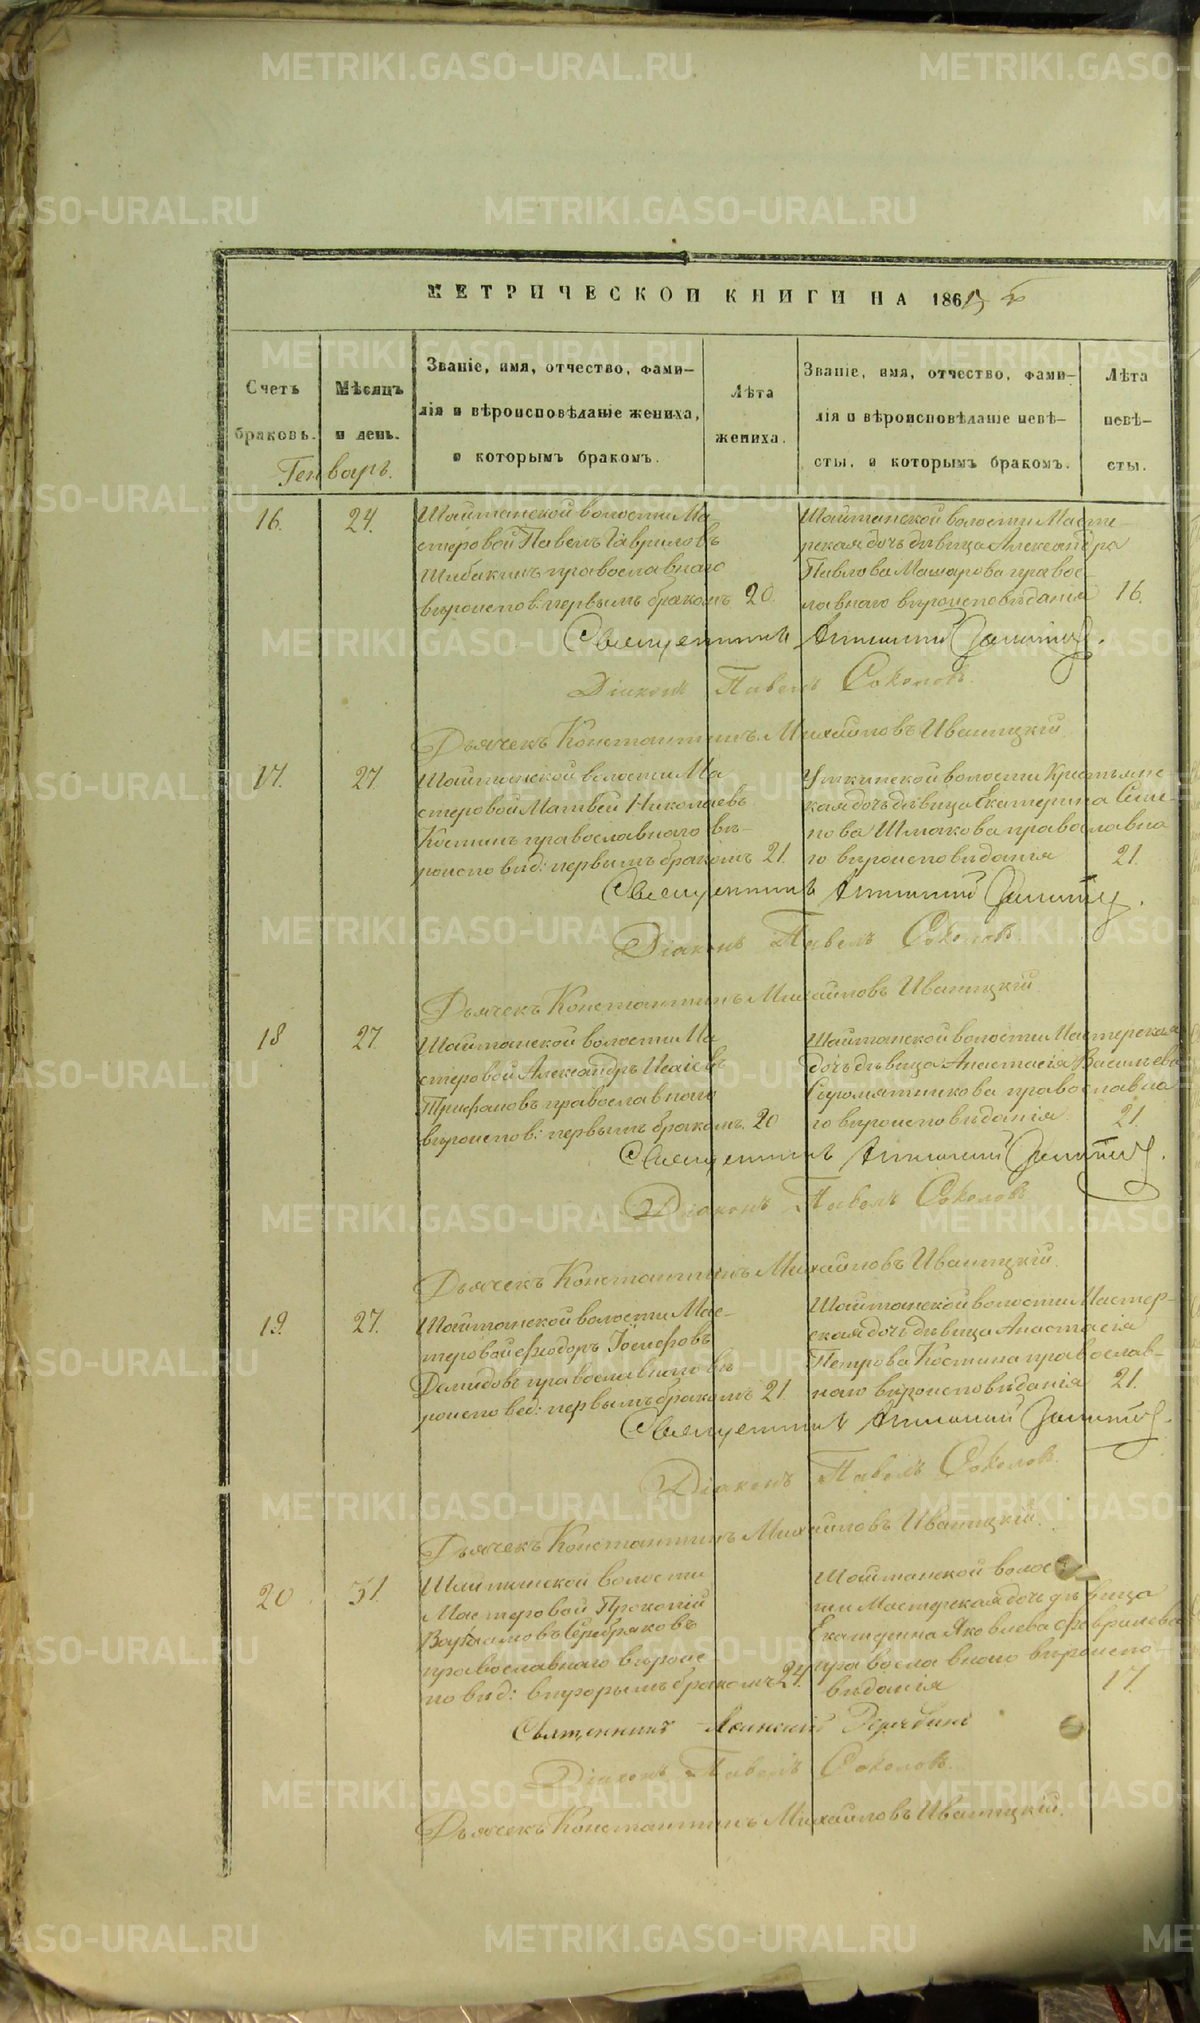 МЕТРИЧЕСКОЙ КНИГИ НА 186
Счетъ браковъ.
Мѣсяцъ и день.
Званіе, имя, отчество, фами-
лія и вѣроисповѣданіе жениха,
и которымъ бракомъ.
Лѣта жениха.
Званіе, имя, отчество, фами-
лія и вѣроисповѣданіе невѣ-
сты, и которымъ бракомъ.
Лѣта невѣ-
сты.
Генварь.
16. 24.
Шайтанской волости Ма-
стеровой Павелъ Гавриловъ
Шибакинъ православнаго
вѣроиспов: первымъ бракомъ 20
Шайтанской волости Масте-
рская дочь дѣвица Александра
Павлова Макарова правос-
лавнаго вѣроисповѣданія 16.
Священникъ
Діаконъ Павелъ Соколовъ.
Дьячекъ Константинъ Михайловъ Иваницкій.
17. 27.
Шайтанской волости Ма-
стеровой Матвей Николаевъ
Костинъ православнаго вѣ-
роисповѣд: первымъ бракомъ 21.
Уткинской волости Крестьянс-
кая дочь дѣвица Екатерина Семе-
нова Шмакова православна
го вѣроисповѣданія 21.
Священникъ
Діаконъ Павелъ Соколовъ
Дьячекъ Константинъ Михайловъ Иваницкій.
18 27
Шайтанской волости Ма
стеровой Александръ Исаіевъ
Трифановъ православнаго
вѣроиспов: первымъ бракомъ. 20
Шайтанской волости Мастерская
дочь дѣвица Анастасія Васильева
Сыромятникова православна
го вѣроисповѣданія 21.
Священникъ
Діаконъ Павелъ Соколовъ
Дьячекъ Константинъ Михайловъ Иваницкій.
19. 27.
Шайтанской волости Мас-
теровой Феодоръ Іосифовъ
Демидовъ православнаго вѣ
роисповед: первымъ бракомъ 21
Шайтанской волости Мастер-
ская дочь дѣвица Анастасія
Петрова Костина православ-
наго вѣроисповѣданія 21.
Священникъ
Діаконъ Павелъ Соколовъ.
Дьячекъ Константинъ Михайловъ Иваницкій.
20 31.
Шайтанской волости
Мастеровой Прокопій
Серебряковъ
православнаго вѣроис
повѣд: вторымъ бракомъ 24.
Шайтанской волос
ти Мастерская дочь дѣвица
Екатерина Яковлева
православнаго вѣроиспо-
вѣданія 17.
Священникъ
Діаконъ Павелъ Соколовъ.
Дьячекъ Константинъ Михайловъ Иваницкій.
METRIKI.GASO-URAL.RU